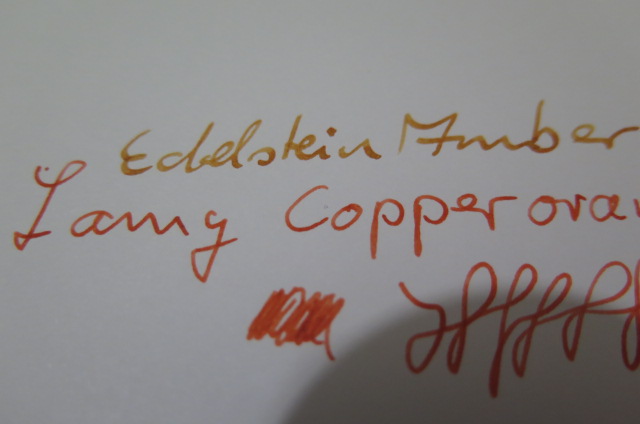 Edelstein Amber
Lamy Copperora